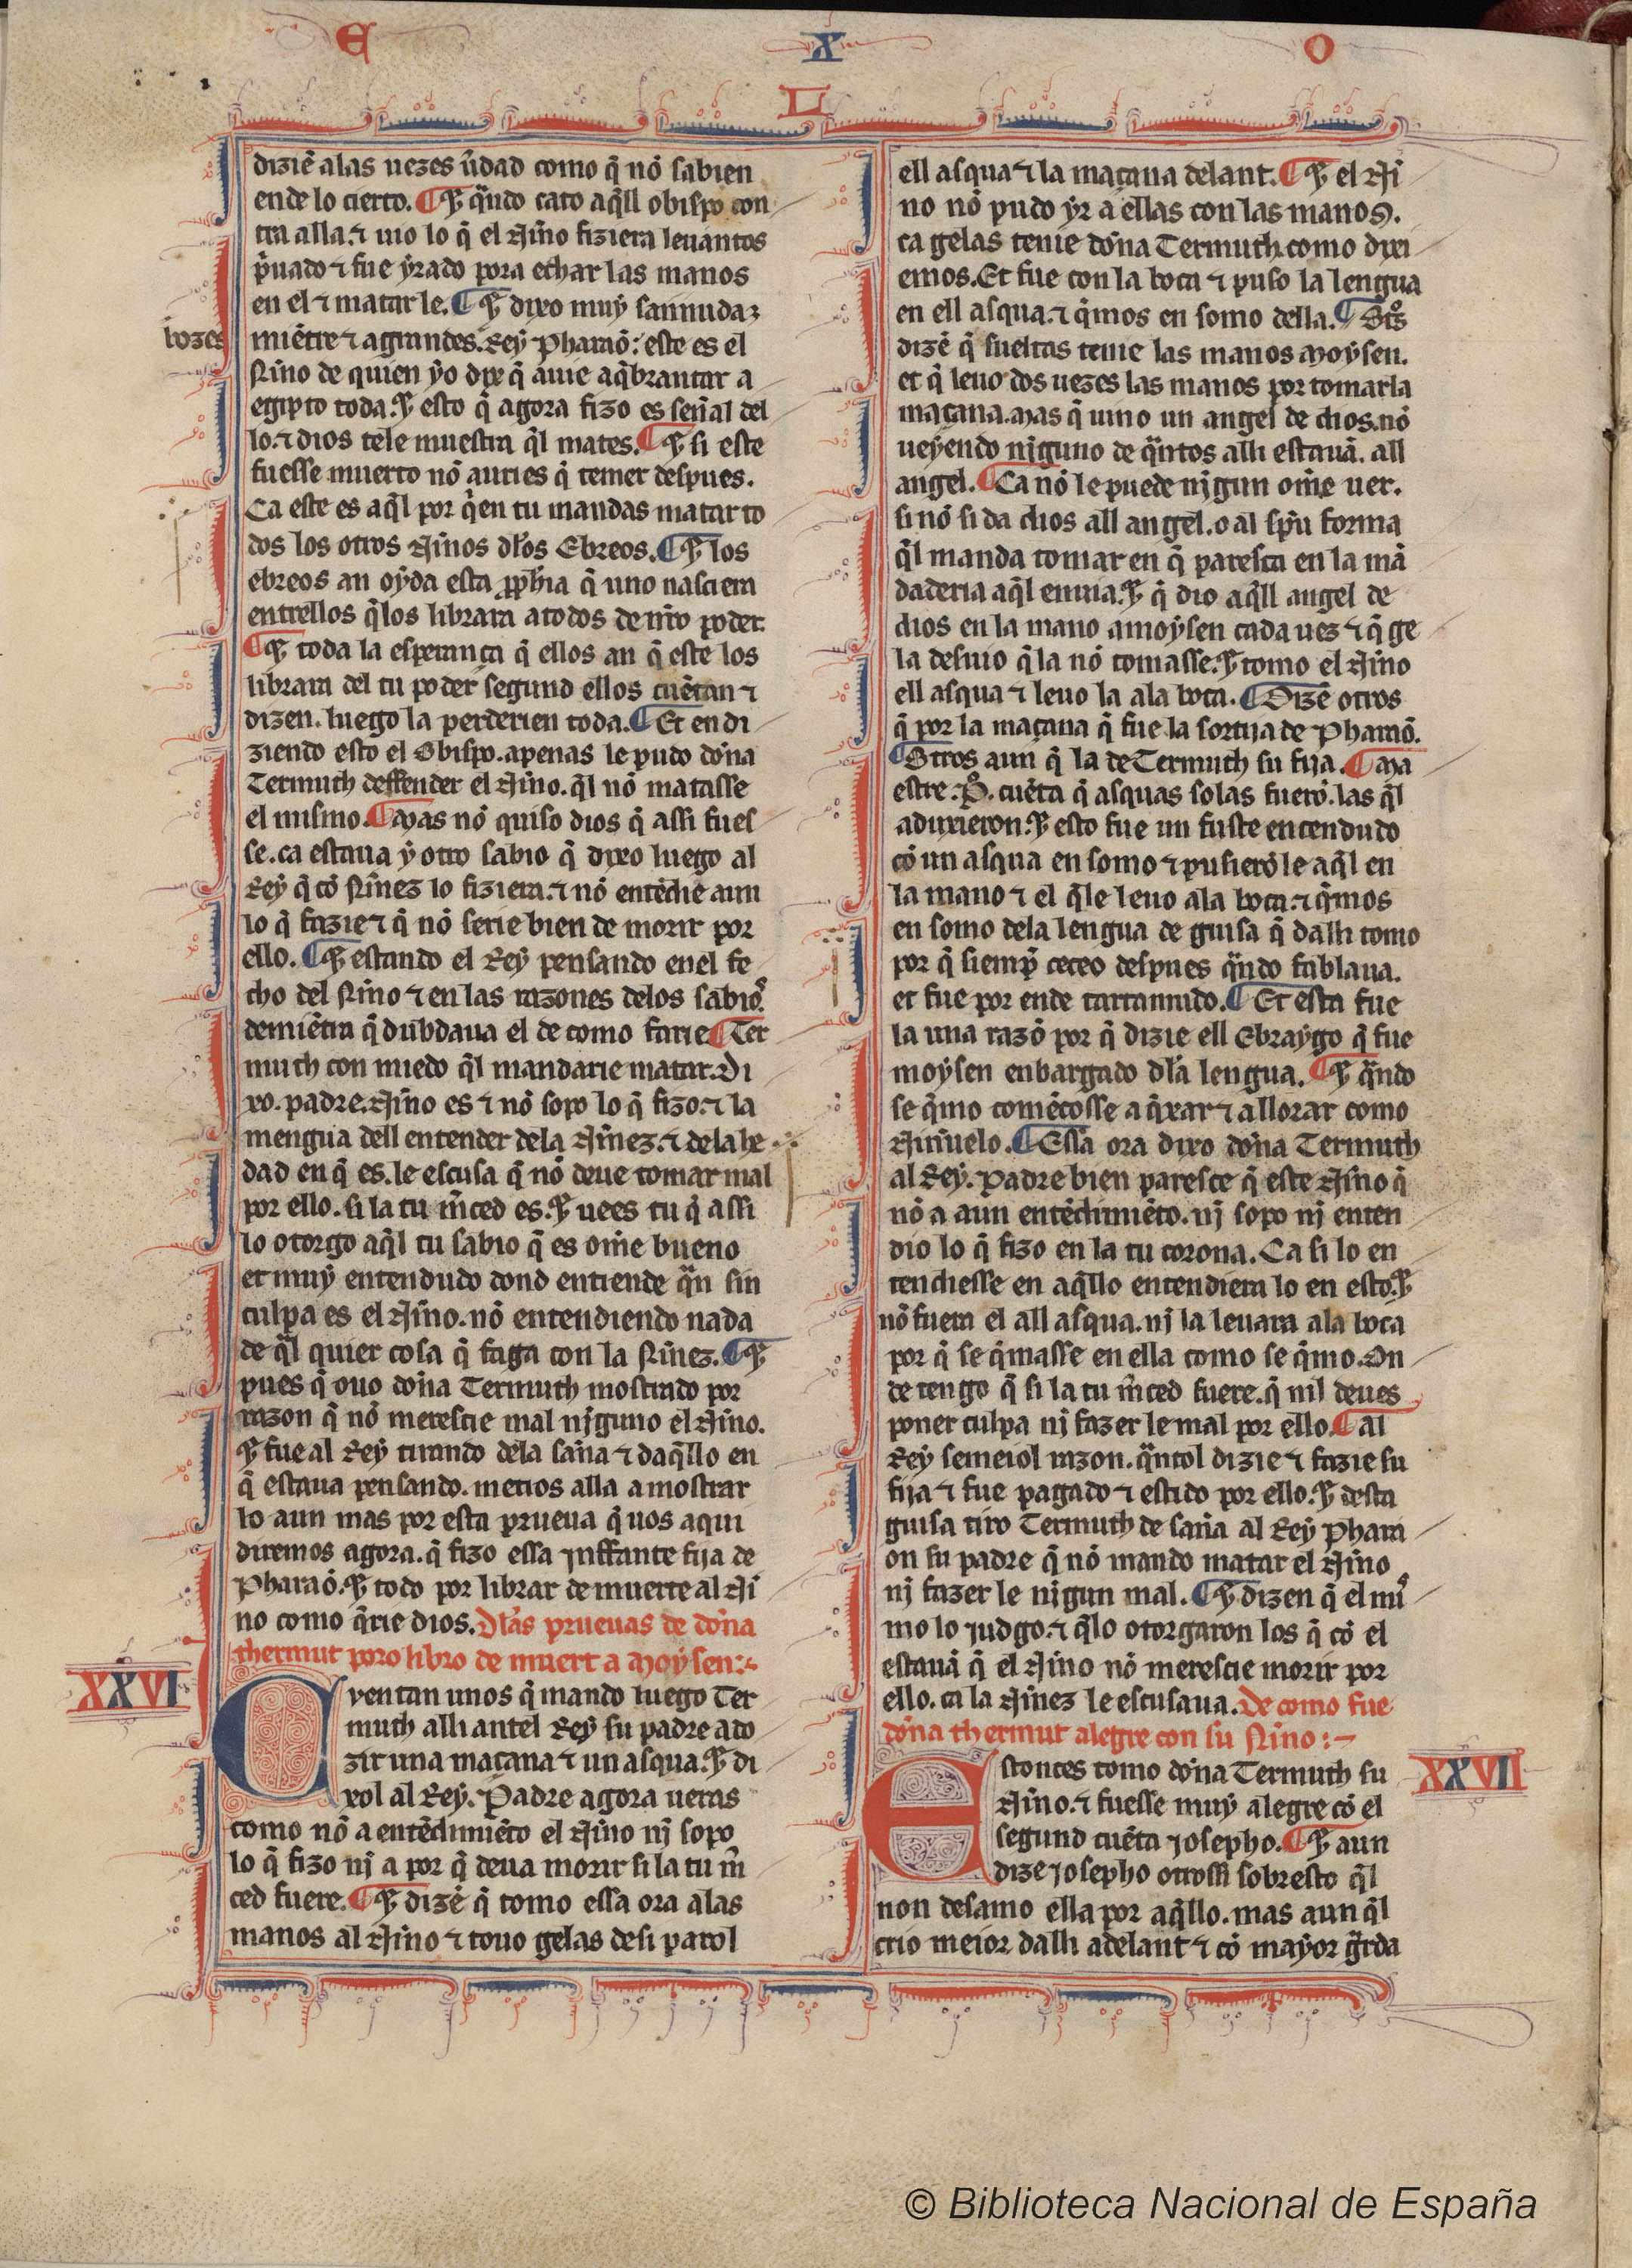 E X O
L
diziẽ alas uezes ũdad como q̃ nõ sabien
ende lo cierto. ¶ Et q̃ndo cato aq̃ll obispo con
tra alla. ⁊ uio lo q̃ el Nin̄o fiziera leuantos
p̃uado ⁊ fue ẏrado pora echar las manos
en el ⁊ matar le. ¶ Et dixo muẏ sannuda
bozes
miẽtre ⁊ a grandes. Reẏ Pharaõ: este es el
Nin̄o de quien ẏo dixe q̃ auie aq̃brantar a
egipto toda. Et esto q̃ agora fizo es sen̄al del
lo. ⁊ dios tele muestra q̃l mates. ¶ Et si este
fuesse muerto nõ auries q̃ temer despues.
Ca este es aq̃l por q̃en tu mandas matar to
dos los otros Nin̄os dl̃os Ebreos. ¶ Et los
ebreos an oẏda esta ꝓph̃ia q̃ uno nasciera
entrellos q̃los librara atodos de nr̃o poder.
¶ Et toda la esperança q̃ ellos an q̃ este los
librara del tu poder segund ellos cuẽtan ⁊
dizen. luego la perderien toda. ¶ Et en di
ziendo esto el Obispo. apenas le pudo don̄a
Termuth deffender el Nin̄o. q̃l nõ matasse
el mismo. ¶ Mas nõ quiso dios q̃ assi fues
se. ca estaua ẏ otro sabio q̃ dixo luego al
Reẏ q̃ cõ Nin̄ez lo fiziera. ⁊ nõ entẽdie aun
lo q̃ fazie ⁊ q̃ nõ serie bien de morir por
ello. ¶ Et estando el Reẏ pensando enel fe
cho del Nin̄o ⁊ en las razones delos sabios.
demiẽtra q̃ dubdaua el de como farie ¶ Ter
muth con miedo q̃l mandarie matar. Di
xo. padre. Nin̄o es ⁊ nõ sopo lo q̃ fizo. ⁊ la
mengua dell entender dela Nin̄ez. ⁊ dela he
dad en q̃ es. le escusa q̃ nõ deue tomar mal
por ello. si la tu m̃ced es. Et uees tu q̃ assi
lo otorgo aq̃l tu sabio q̃ es om̃e bueno
et muẏ entendudo dond entiende q̃n sin
culpa es el Nin̄o. nõ entendiendo nada
de q̃l quier cosa q̃ faga con la Nin̄ez. ¶ Et
pues q̃ ouo don̄a Termuth mostrado por
razon q̃ nõ merescie mal nj̃guno el Nin̄o.
Et fue al Reẏ tirando dela san̄a ⁊ daq̃llo en
q̃ estaua pensando. metios alla a mostrar
lo aun mas por esta prueua q̃ uos aqui
diremos agora. q̃ fizo essa Jnffante fija de
Pharaõ. Et todo por librar de muerte al Ni
no como q̃rie dios. Dl̃as prueuas de don̄a
thermut poro libro de muert a Moẏsen:~
XXVI
Cventan unos q̃ mando luego Ter
muth alli antel Reẏ su padre adu
zir una maçana ⁊ un asqua. Et di
xol al Reẏ. Padre agora ueras
como nõ a entẽdimiẽto el Nin̄o nj sopo
lo q̃ fizo nj a por q̃ deua morir si la tu m̃
ced fuere. ¶ Et dizẽ q̃ tomo essa ora alas
manos al Nin̄o ⁊ touo gelas desi parol
ell asqua ⁊ la maçana delant. ¶ Et el Ni
no nõ pudo ẏr a ellas con las manos.
ca gelas tenie don̄a Termuth. como dixi
emos. Et fue con la boca ⁊ puso la lengua
en ell asqua. ⁊ q̃mos en somo della. ¶ Otͦs
dizẽ q̃ sueltas tenie las manos Moẏsen.
et q̃ leuo dos uezes las manos por tomar la
maçana. Mas q̃ uino un angel de dios. nõ
ueẏendo nj̃guno de q̃ntos alli estauã. all
angel. ¶ Ca nõ le puede nj̃gun om̃e uer.
si nõ si da dios all angel. o al sp̃u forma
q̃l manda tomar en q̃ paresca en la mã
daderia aq̃l enuia. Et q̃ dio aq̃ll angel de
dios en la mano a moẏsen cada uez ⁊ q̃ ge
la desuio q̃la nõ tomasse. Et tomo el Nin̄o
ell asqua ⁊ leuo la ala boca. ¶ Dizẽ otros
q̃ por la maçana q̃ fue la sortija de Pharaõ.
¶ Otros aun q̃ la de Termuth su fija. ¶ Ma
estre. P̃. cuẽta q̃ asquas solas fuerõ. las q̃l
aduxieron. Et esto fue un fuste encendudo
cõ un asqua en somo ⁊ pusierõ le aq̃l en
la mano ⁊ el q̃le leuo ala boca. ⁊ q̃mos
en somo dela lengua de guisa q̃ dalli tomo
por q̃ siemp̃ ceceo despues q̃ndo fablaua.
et fue por ende tartamudo. ¶ Et esta fue
la una razõ por q̃ dizie ell Ebraẏgo q̃ fue
moẏsen enbargado dl̃a lengua. ¶ Et q̃ndo
se q̃mo comẽçosse a q̃xar ⁊ allorar como
Nin̄uelo. ¶ Essa ora dixo don̄a Termuth
al Reẏ. Padre bien paresce q̃ este Nin̄o q̃
nõ a aun entẽdimiẽto. nj sopo nj enten
dio lo q̃ fizo en la tu corona. Ca si lo en
tendiesse en aq̃llo entendiera lo en esto. Et
nõ fuera el all asqua. nj la leuara ala boca
por q̃ se q̃masse en ella como se q̃mo. On
de tengo q̃ si la tu m̃ced fuere. q̃ nil deues
poner culpa nj fazer le mal por ello. ¶ Al
Reẏ semeiol razon. q̃ntol dizie ⁊ fazie su
fija ⁊ fue pagado ⁊ estido por ello. Et desta
guisa tiro Termuth de san̄a al Reẏ Phara
on su padre q̃ nõ mando matar el Nin̄o
nj fazer le nj̃gun mal. ¶ Et dizen q̃ el mis
mo lo judgo. ⁊ q̃lo otorgaron los q̃ cõ el
estauã q̃ el Nin̄o nõ merescie morir por
ello. ca la Nin̄ez le escusaua. De como fue
don̄a thermut alegre con su Nin̄o:~
XXVII
Estonces tomo don̄a Termuth su
Nin̄o. ⁊ fuesse muẏ alegre cõ el
segund cuẽta Josepho. ¶ Et aun
dize Josepho otrossi sobresto q̃l
non desamo ella por aq̃llo. mas aun q̃l
crio meior dalli adelant ⁊ cõ maẏor g̃rda
© Biblioteca Nacional de España